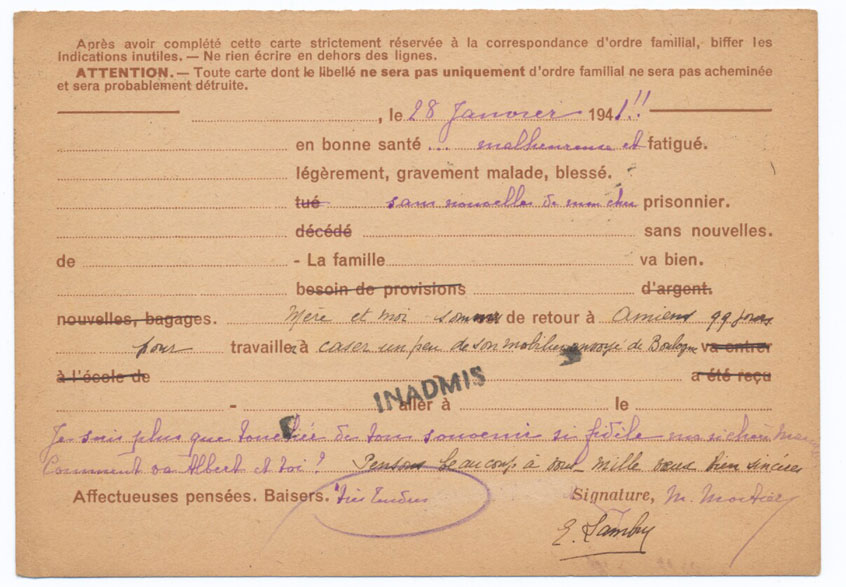 Après avoir complété cette carte strictement réservée à la correspondance d'ordre familial, biffer les
indications inutiles. — Ne rien écrire en dehors des lignes.
ATTENTION. — Toute carte dont le libellé ne sera pas uniquement d'ordre familial ne sera pas acheminée
et sera probablement détruite.
, le 28 Janvier 1941!!
en bonne santé ... malheureuse et fatigué.
légèrement, gravement malade, blessé.
tué sans nouvelles de mon cher prisonnier.
décédé sans nouvelles.
de - La famille va bien.
besoin de provisions d'argent.
nouvelles, bagages. Mère et moi sommes de retour à Amiens qq jours
pour travailler à caser un peu de son mobilier envoyé de Boulogne va entrer
à l'école de a été reçu
INADMIS
- aller à le
Je suis plus que touchée de ton souvenir si fidèle ma si chère
Comment va Albert et toi ? Pensons beaucoup à vous - mille vœux bien sincères
Affectueuses pensées. Baisers. très tendres Signature, M. Mortier
E.